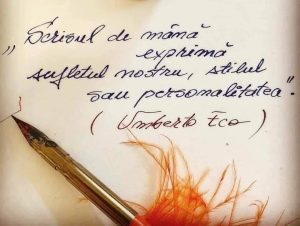 „Scrisul de mână
exprimă
sufletul nostru, stilul
sau personalitatea”.
(Umberto Eco)